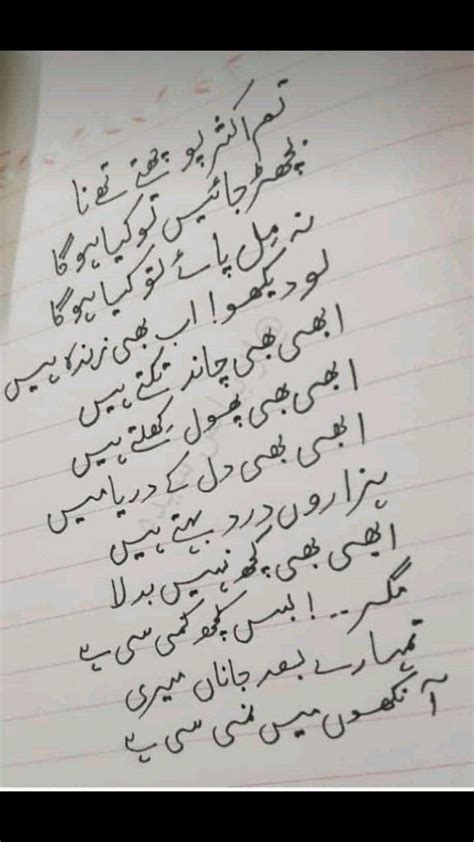 تم اکثر پوچھتے تھے نا
بچھڑ جائیں تو کیا ہوگا
نہ مِل پائے تو کیا ہوگا
لو دیکھو! اب بھی زندہ ہیں
ابھی بھی چاند تکتے ہیں
ابھی بھی پھول کِھلتے ہیں
ابھی بھی دل کے دریا میں
ہزاروں درد بہتے ہیں
ابھی بھی کچھ نہیں بدلا
مگر ۔۔ ! بس کچھ کمی سی ہے
تمہارے بعد جاناں میری
آنکھوں میں نمی سی ہے